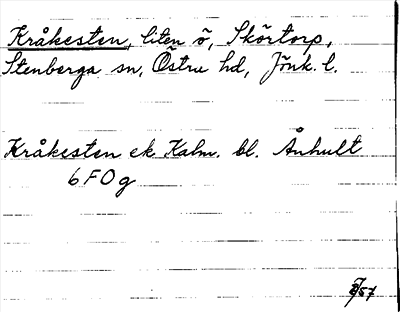 Kråkesten, liten ö, Skörtorp,
Stenberga sn, Östra hd, Jönk. l.
Kråkesten ek Kalm. bl. Ånhult
6 F 0 g
57